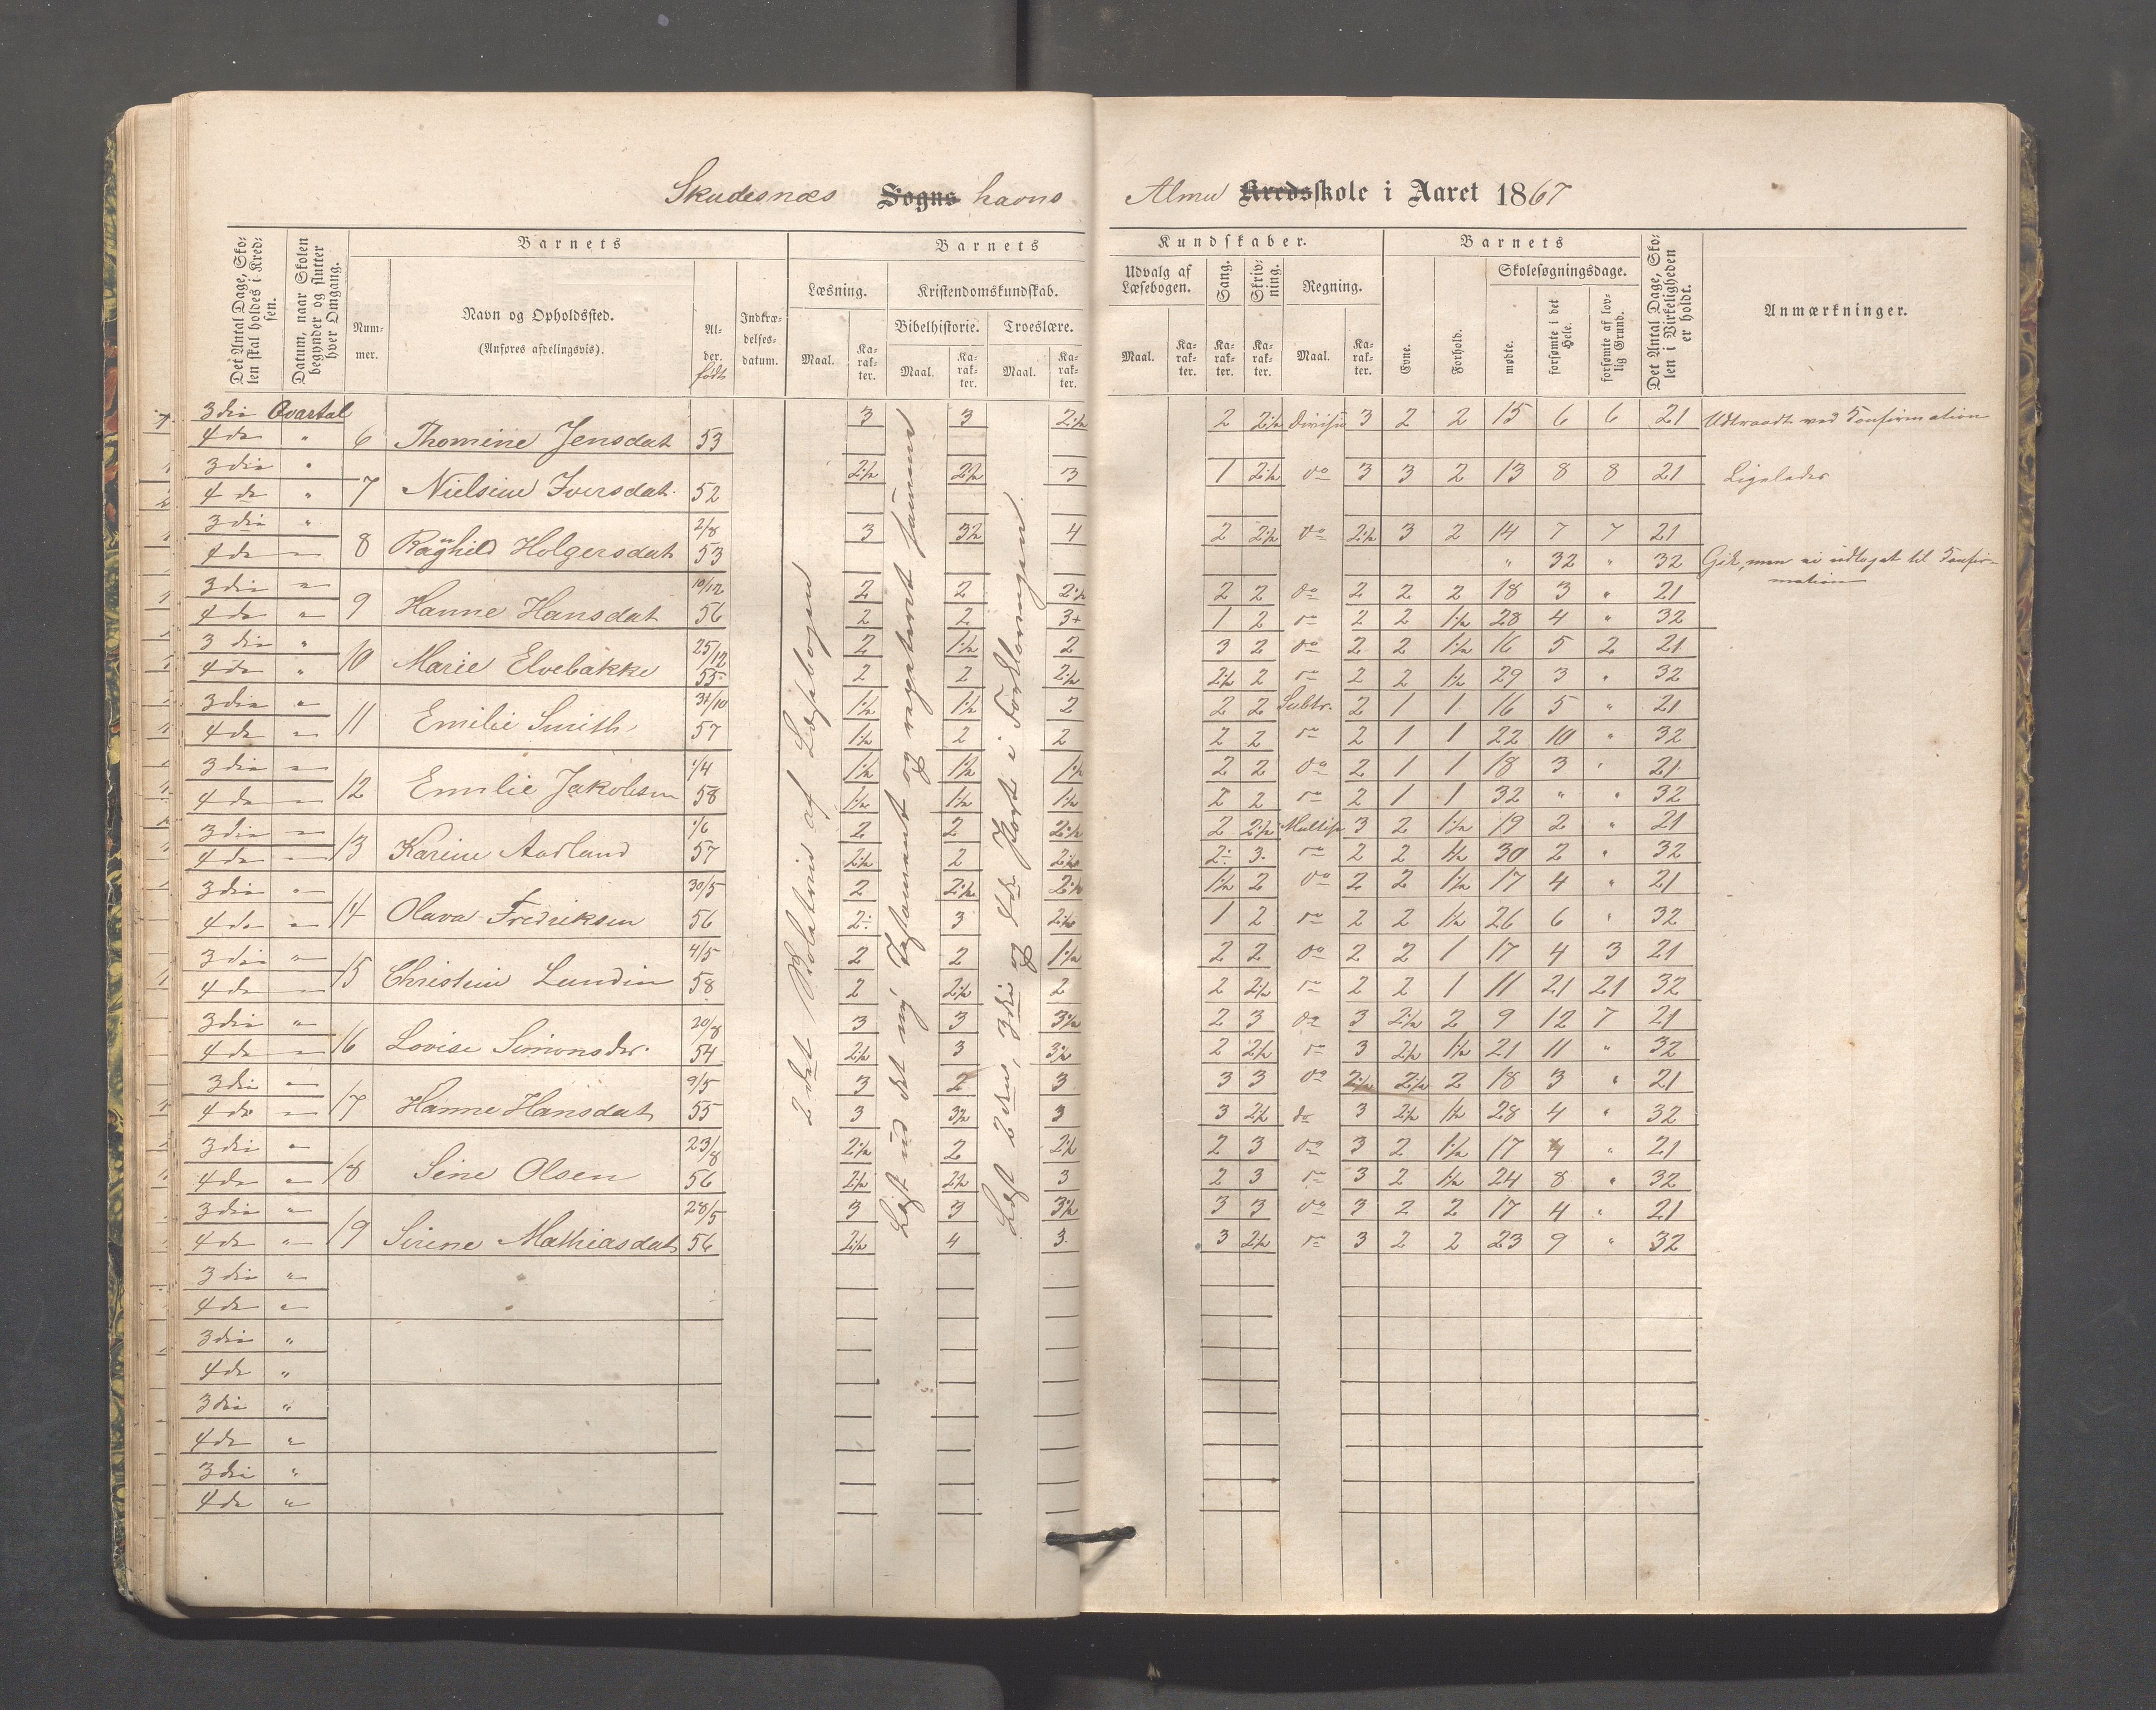 Skudesnæs Sogns havns Almu Kredsskole i Aaret 1867
Det Antal Dage, Skolen skal holdes i Kredsen.
Datum, naar Skolen begynder og slutter hver Omgang.
Barnets
Nummer.
Navn og Opholdssted.
(Anføres afdelingsvis).
Alder.
født
Indtrædelsesdatum.
Barnets Kundskaber.
Læsning.
Maal. Karakter.
Kristendomskundskab.
Bibelhistorie. Troeslære.
Maal. Karakter. Maal. Karakter.
Udvalg af Læsebogen.
Maal. Karakter.
Sang. Karakter.
Skrivning. Karakter.
Regning.
Maal. Karakter.
Barnets
Evne. Forhold.
Skolesøgningsdage.
mødte. forsømte i det Hele. forsømte af lovlig Grund.
Det Antal Dage, Skolen i Virkeligheden er holdt.
Anmærkninger.
2det af Læsebogen
Læst ud det ny Testament og
Læst 2den, 3die og 4de Part i Forklaringen
3die Qvartal 3 3 2 Division 3 2 2 15 6 6 21 Udtraadt ved Konfirmation
4de " 6 Thomine Jensdat 53
3die " 3 1 do 3 3 2 13 8 8 21 Ligeledes
4de " 7 Nielsine Iversdat. 52
3die " 2/8 3 4 2 do 3 2 14 7 7 21
4de " 8 Ragnhild Holgersdat 53 " 32 " 32 Gik, men ei udtaget til Konfirmation
3die " 10/12 2 2 2 2 do 2 2 2 18 3 " 21
4de " 9 Hanne Hansdat 56 2 2 3+ 1 2 do 2 2 1½ 28 4 " 32
3die " 25/12 2 1½ 2 3 2 do 2 2 1½ 16 5 2 21
4de " 10 Marie Elvebakke 55 2 2 2½ 2½ 2 do 2 2 1½ 29 3 " 32
3die " 31/10 1½ 1½ 2 2 2 Subtr. 2 1 1 16 5 " 21
4de " 11 Emilie Smith 57 1½ 2 2 2 2 do 2 1 1 22 10 " 32
3die " 1/4 1½ 1½ 1½ 2 2 do 2 1 1 18 3 " 21
4de " 12 Emilie Jakobsen 58 1½ 1½ 1½ 2 2 do 2 1 1 32 " " 32
3die " 1/6 2 2 2½ 2 2½ Multip 3 2 1½ 19 2 " 21
4de " 13 Karine Aadland 57 2½ 2 3 do 2 2 1½ 30 2 " 32
3die " 30/5 2 2½ 2½ 1½ 2 do 2 2 1½ 17 4 " 21
4de " 14 Olava Fredriksen 56 3 2½ 1 2 do 2 2 1½ 26 6 " 32
3die " 4/5 2 2 1½ 2 2 do 2 2 1 17 4 3 21
4de " 15 Christine Lundin 58 2 2½ 2 2 2½ do 2 2 1 11 21 21 32
3die " 20/8 3 3 3½ 2 3 do 3 2½ 2 9 12 7 21
4de " 16 Lovise Simonsdr. 54 2½ 3 3½ 2 2½ do 3 2½ 1½ 21 11 " 32
3die " 9/5 3 2 3 3 3 do 2½ 2½ 2 18 3 " 21
4de " 17 Hanne Hansdat 55 3 3½ 3 3 2½ do 3 2½ 1½ 28 4 " 32
3die " 23/8 2½ 2 2½ 2 3 do 3 2 1½ 17 4 " 21
4de " 18 Sine Olsen 56 2½ 2½ 3 2 3 do 3 2 1½ 24 8 " 32
3die " 28/5 3 3 3½ 3 3 do 3 2 2 17 4 " 21
4de " 19 Sirene Mathiasdat 56 2½ 4 3 3 2½ do 3 2 2 23 9 " 32
3die "
4de "
3die "
4de "
3die "
4de "
3die "
4de "